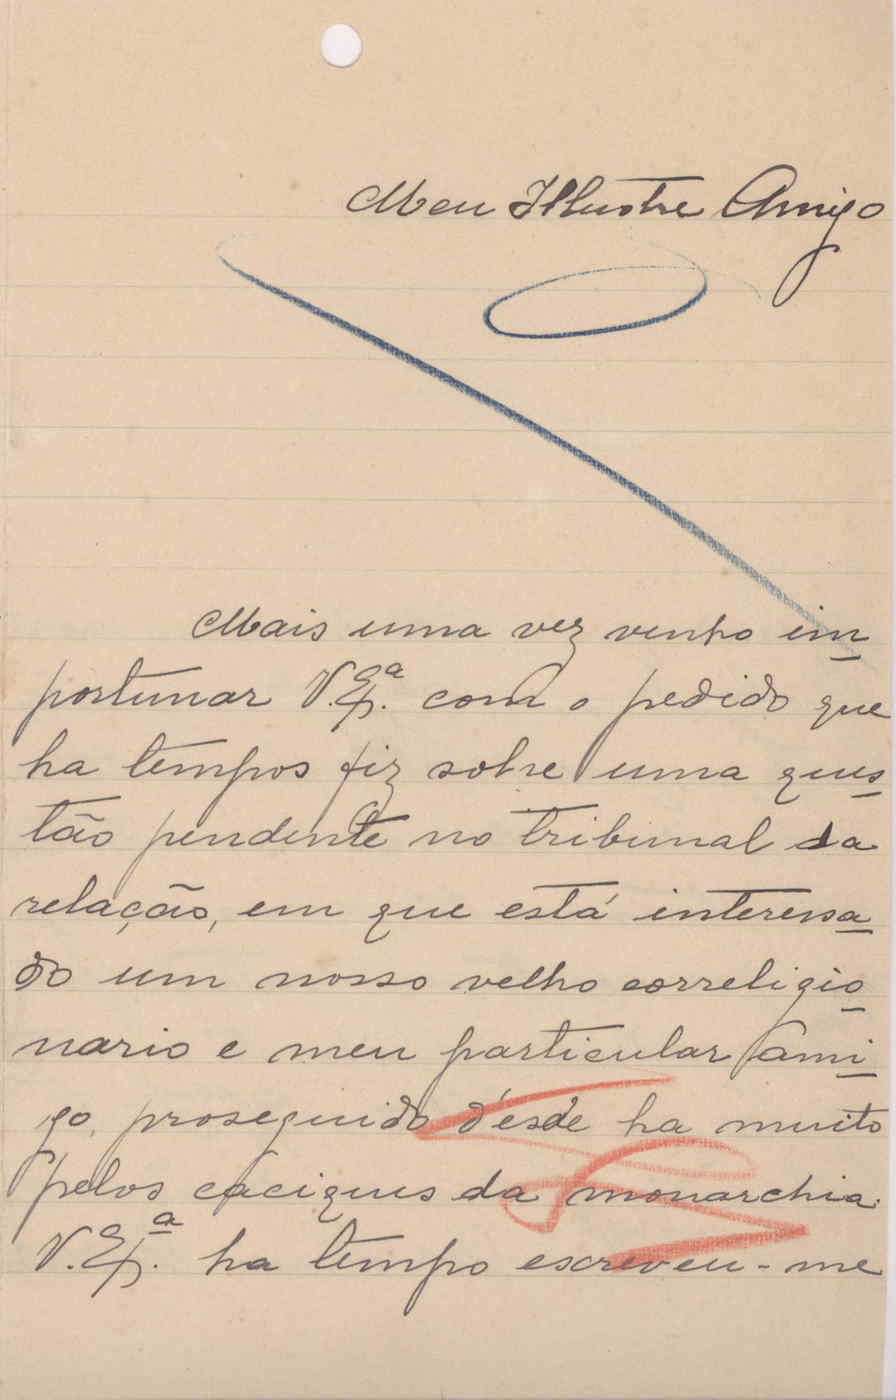 Meu Illustre Amigo
Mais uma vez venho im
portunar V. Exª. com o pedido que
ha tempos fiz sobre uma ques
tão pendente no tribunal da
relação, em que está interessa
do um nosso velho correligio
nario e meu particular ami
go, proseguido d'esde ha muito
pelos caciques da monarchia.
V. Exª. ha tempo escreveu-me